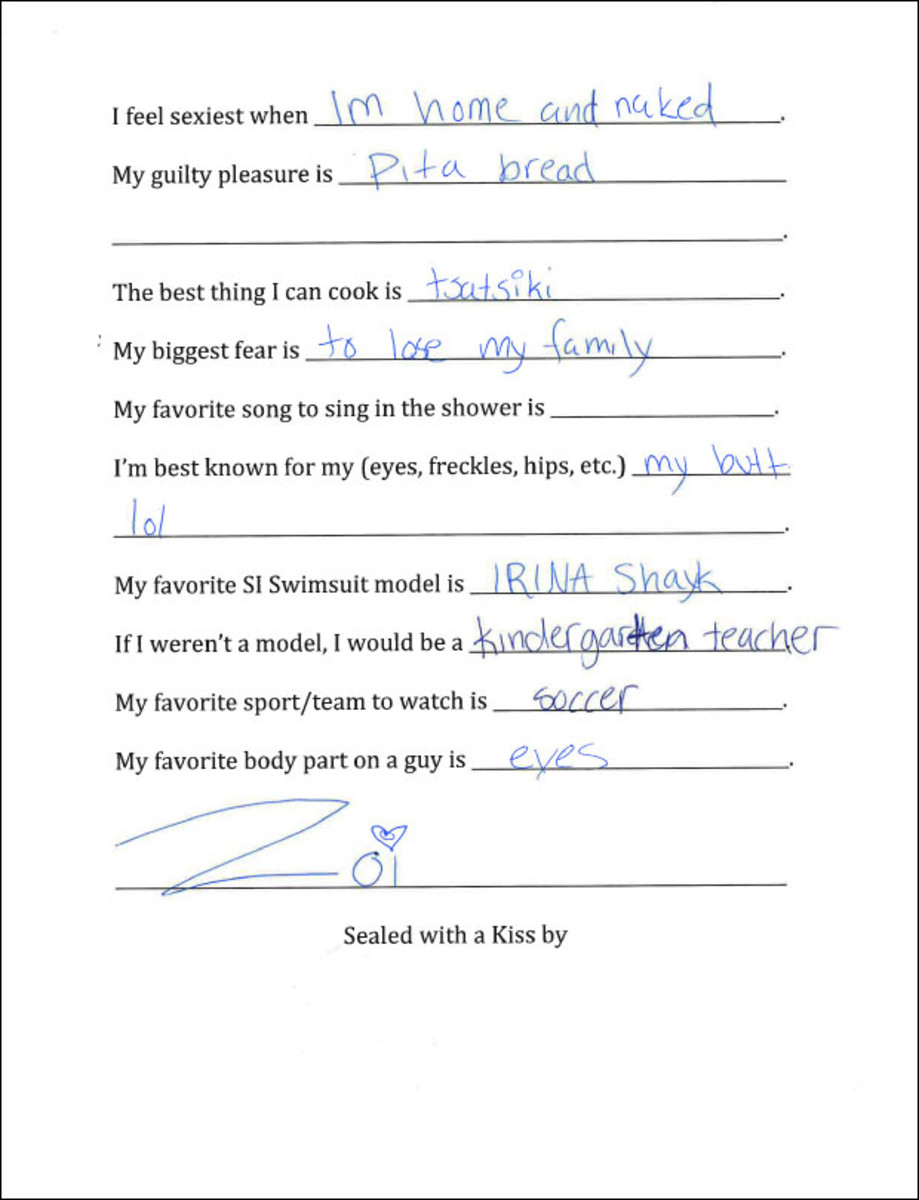 I feel sexiest when Im home and naked.
My guilty pleasure is Pita bread
.
The best thing I can cook is tsatsiki.
My biggest fear is to lose my family.
My favorite song to sing in the shower is .
I'm best known for my (eyes, freckles, hips, etc.) my butt
lol.
My favorite SI Swimsuit model is IRINA Shayk.
If I weren't a model, I would be a kindergarten teacher
My favorite sport/team to watch is soccer.
My favorite body part on a guy is eyes.
Zoi
Sealed with a Kiss by